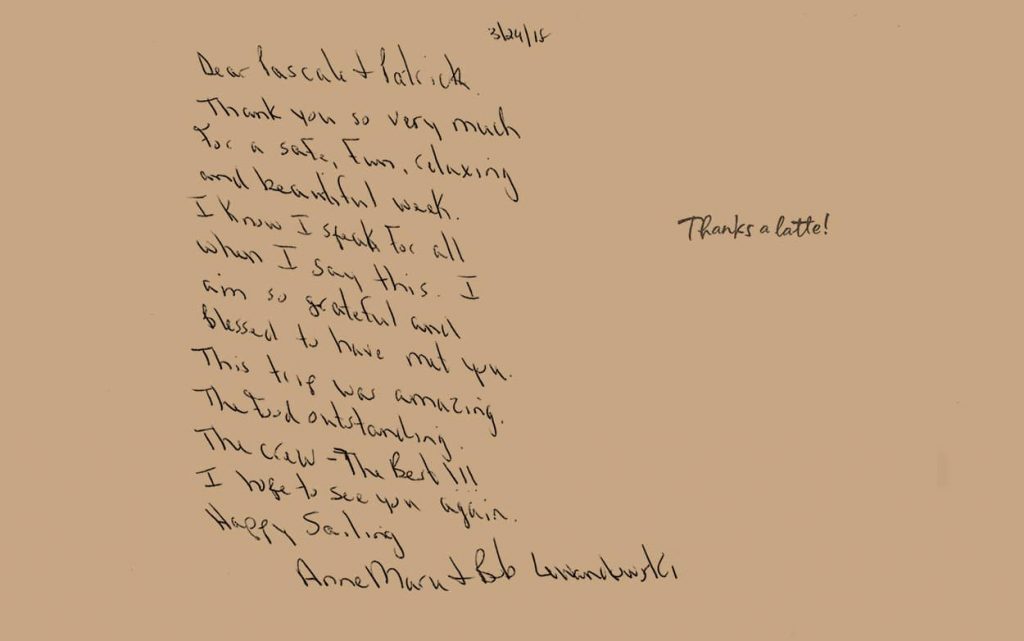 3/24/18
Dear Pascale + Patrick.
Thank you so very much
for a safe, fun, relaxing
and beautiful week.
I know I speak for all
when I say this. I
am so grateful and
blessed to have met you.
This trip was amazing.
The food outstanding.
The crew - The Best!!!
I hope to see you again.
Happy Sailing
Anne Marie + Bob Lewandowski
Thanks a latte!